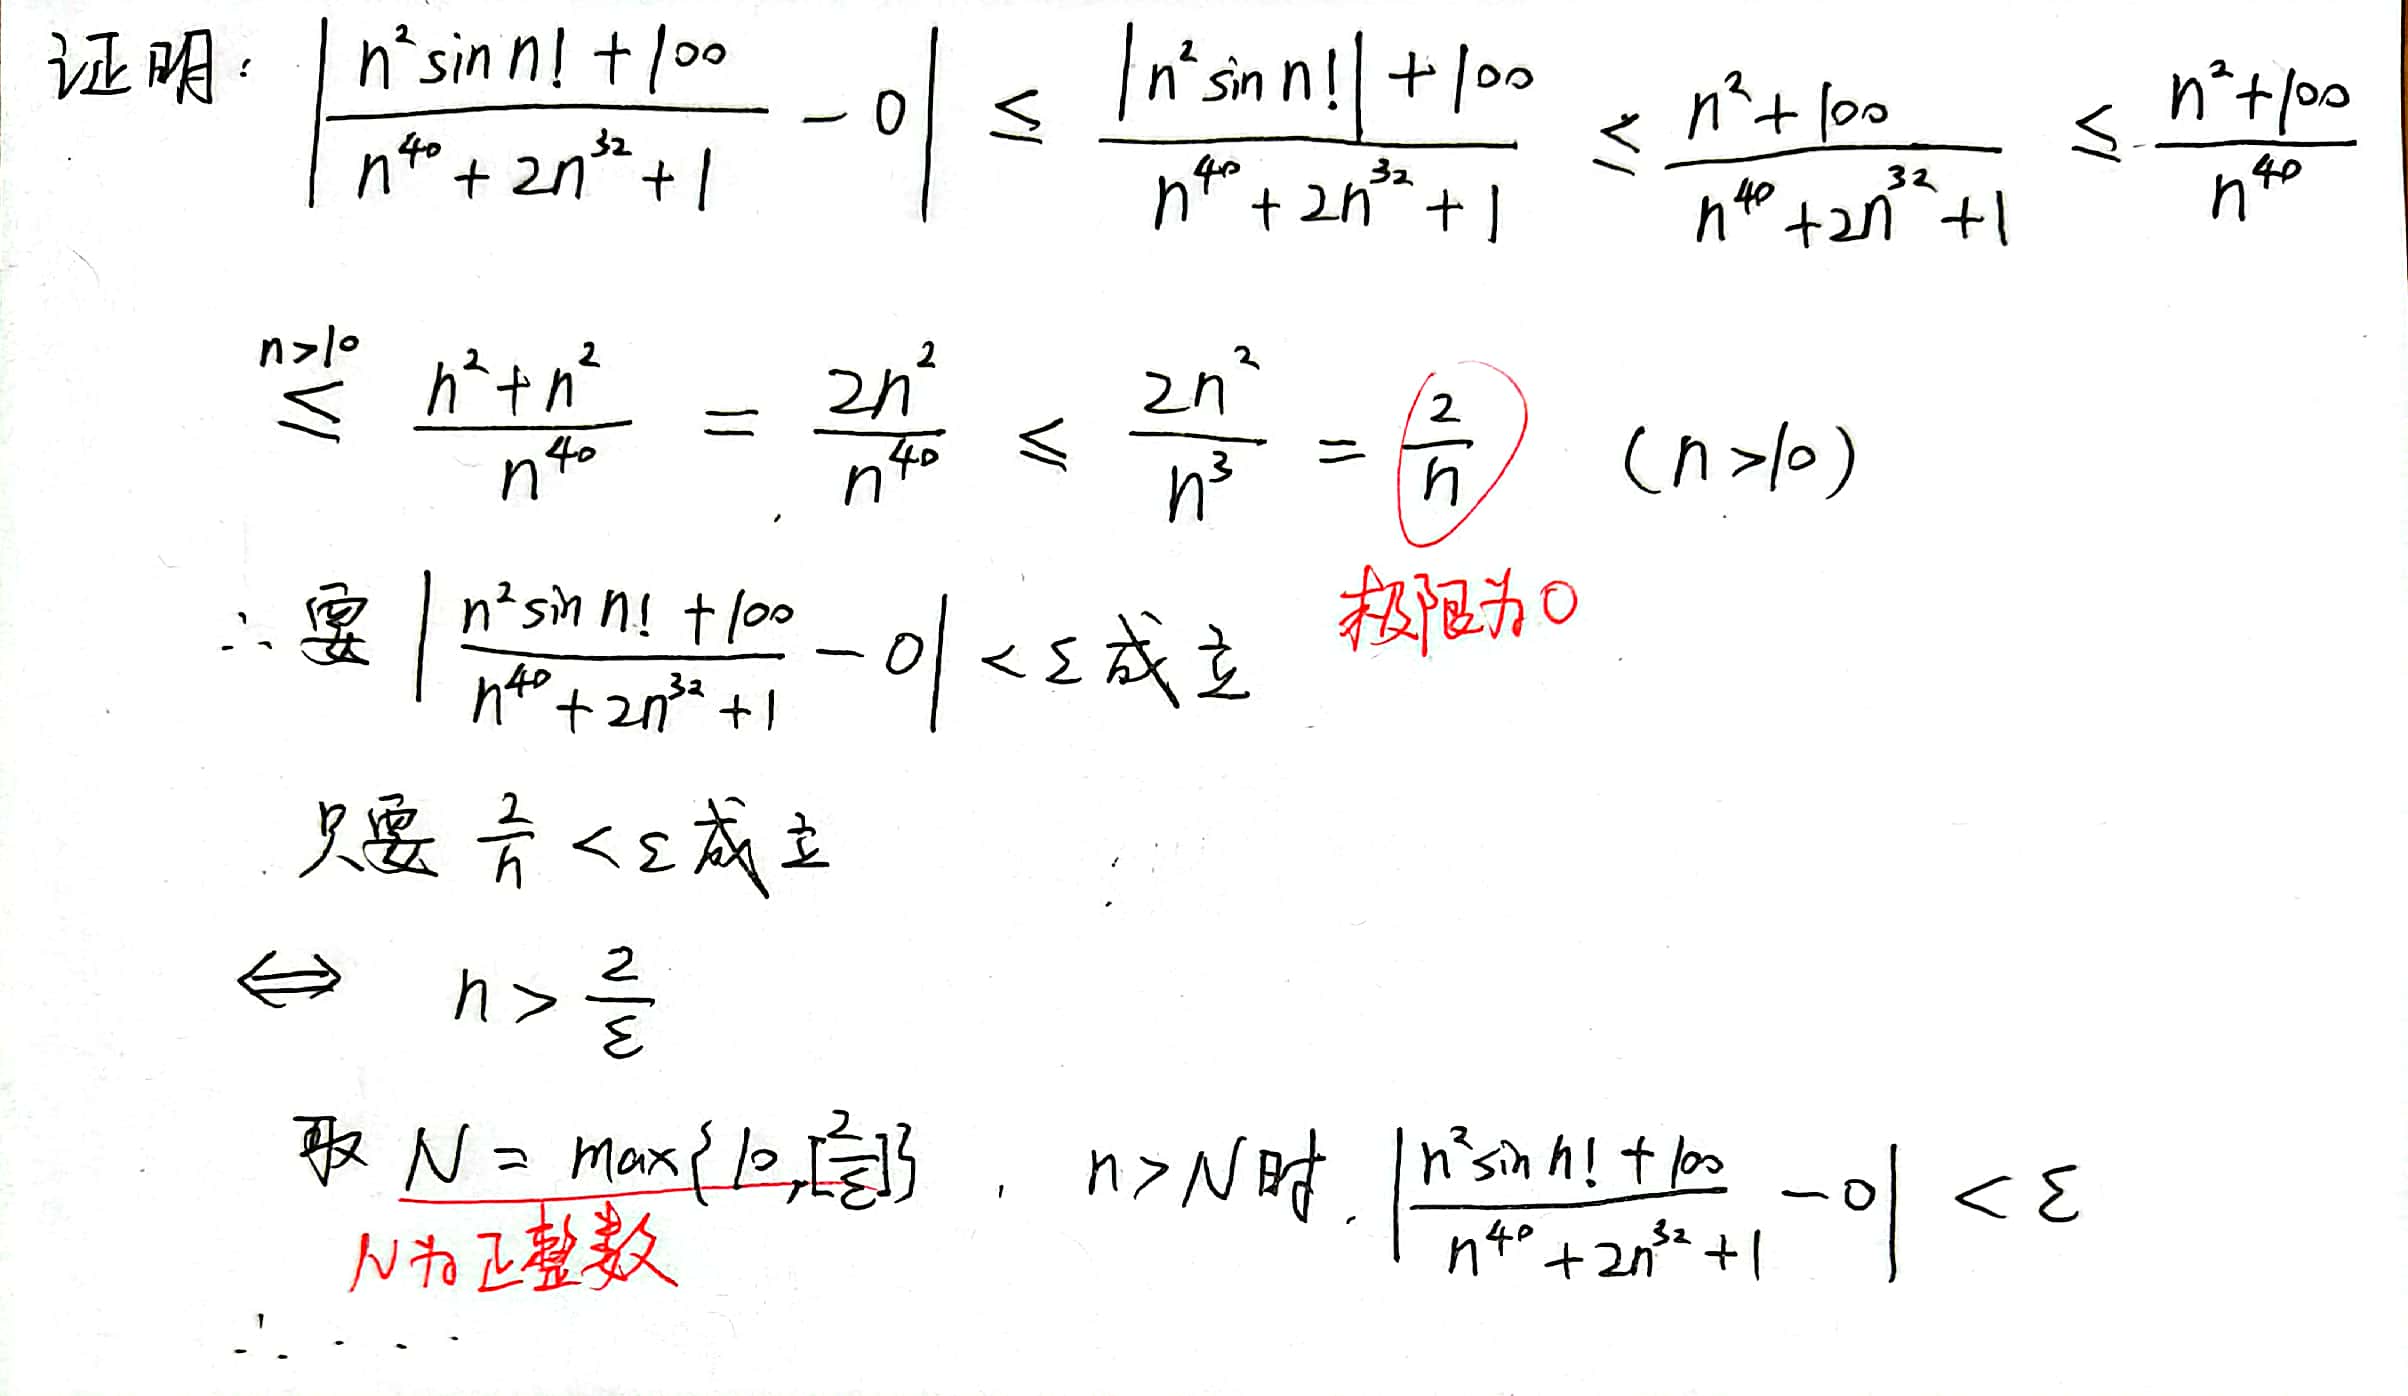 证明: | (n² sin n! + 100) / (n⁴⁰ + 2n³² + 1) - 0 | ≤ (|n² sin n!| + 100) / (n⁴⁰ + 2n³² + 1) ≤ (n² + 100) / (n⁴⁰ + 2n³² + 1) ≤ (n² + 100) / n⁴⁰
n>10 ≤ (n² + n²) / n⁴⁰ = 2n² / n⁴⁰ ≤ 2n² / n³ = 2/n (n>10)
极限为0
∴ 要 | (n² sin n! + 100) / (n⁴⁰ + 2n³² + 1) - 0 | < ε 成立
只要 2/n < ε 成立
⇔ n > 2/ε
取 N = max{10, [2/ε]} , n > N 时. | (n² sin n! + 100) / (n⁴⁰ + 2n³² + 1) - 0 | < ε
N为正整数
∴ ...